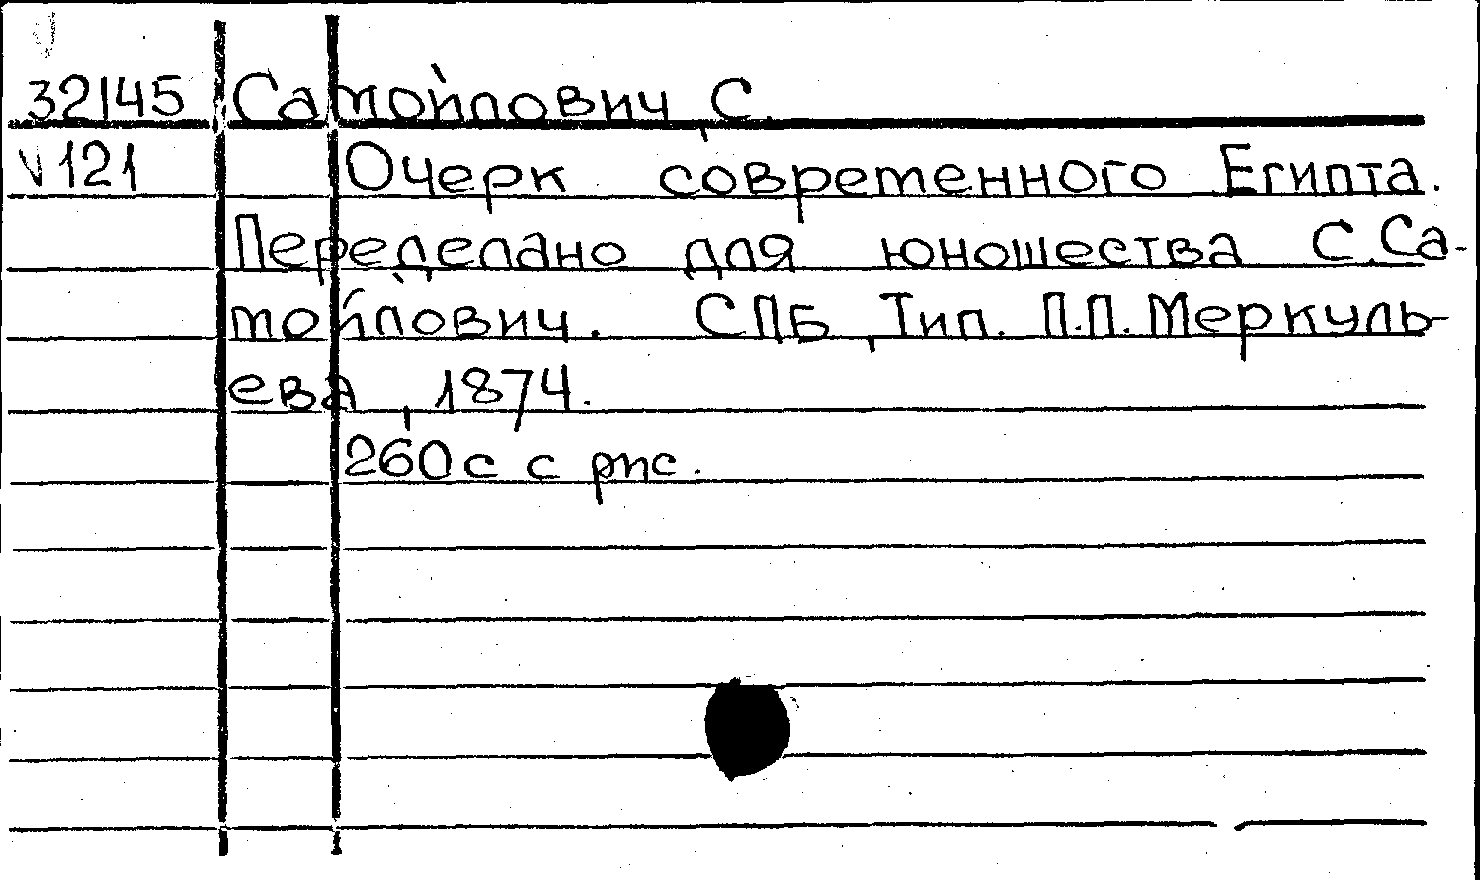 32145 Самойлович, С.
V 121 Очерк современного Египта.
Переделано для юношества С.Са-
мойлович. СПБ, Тип. П.П. Меркуль-
ева, 1874.
260 с с рис.